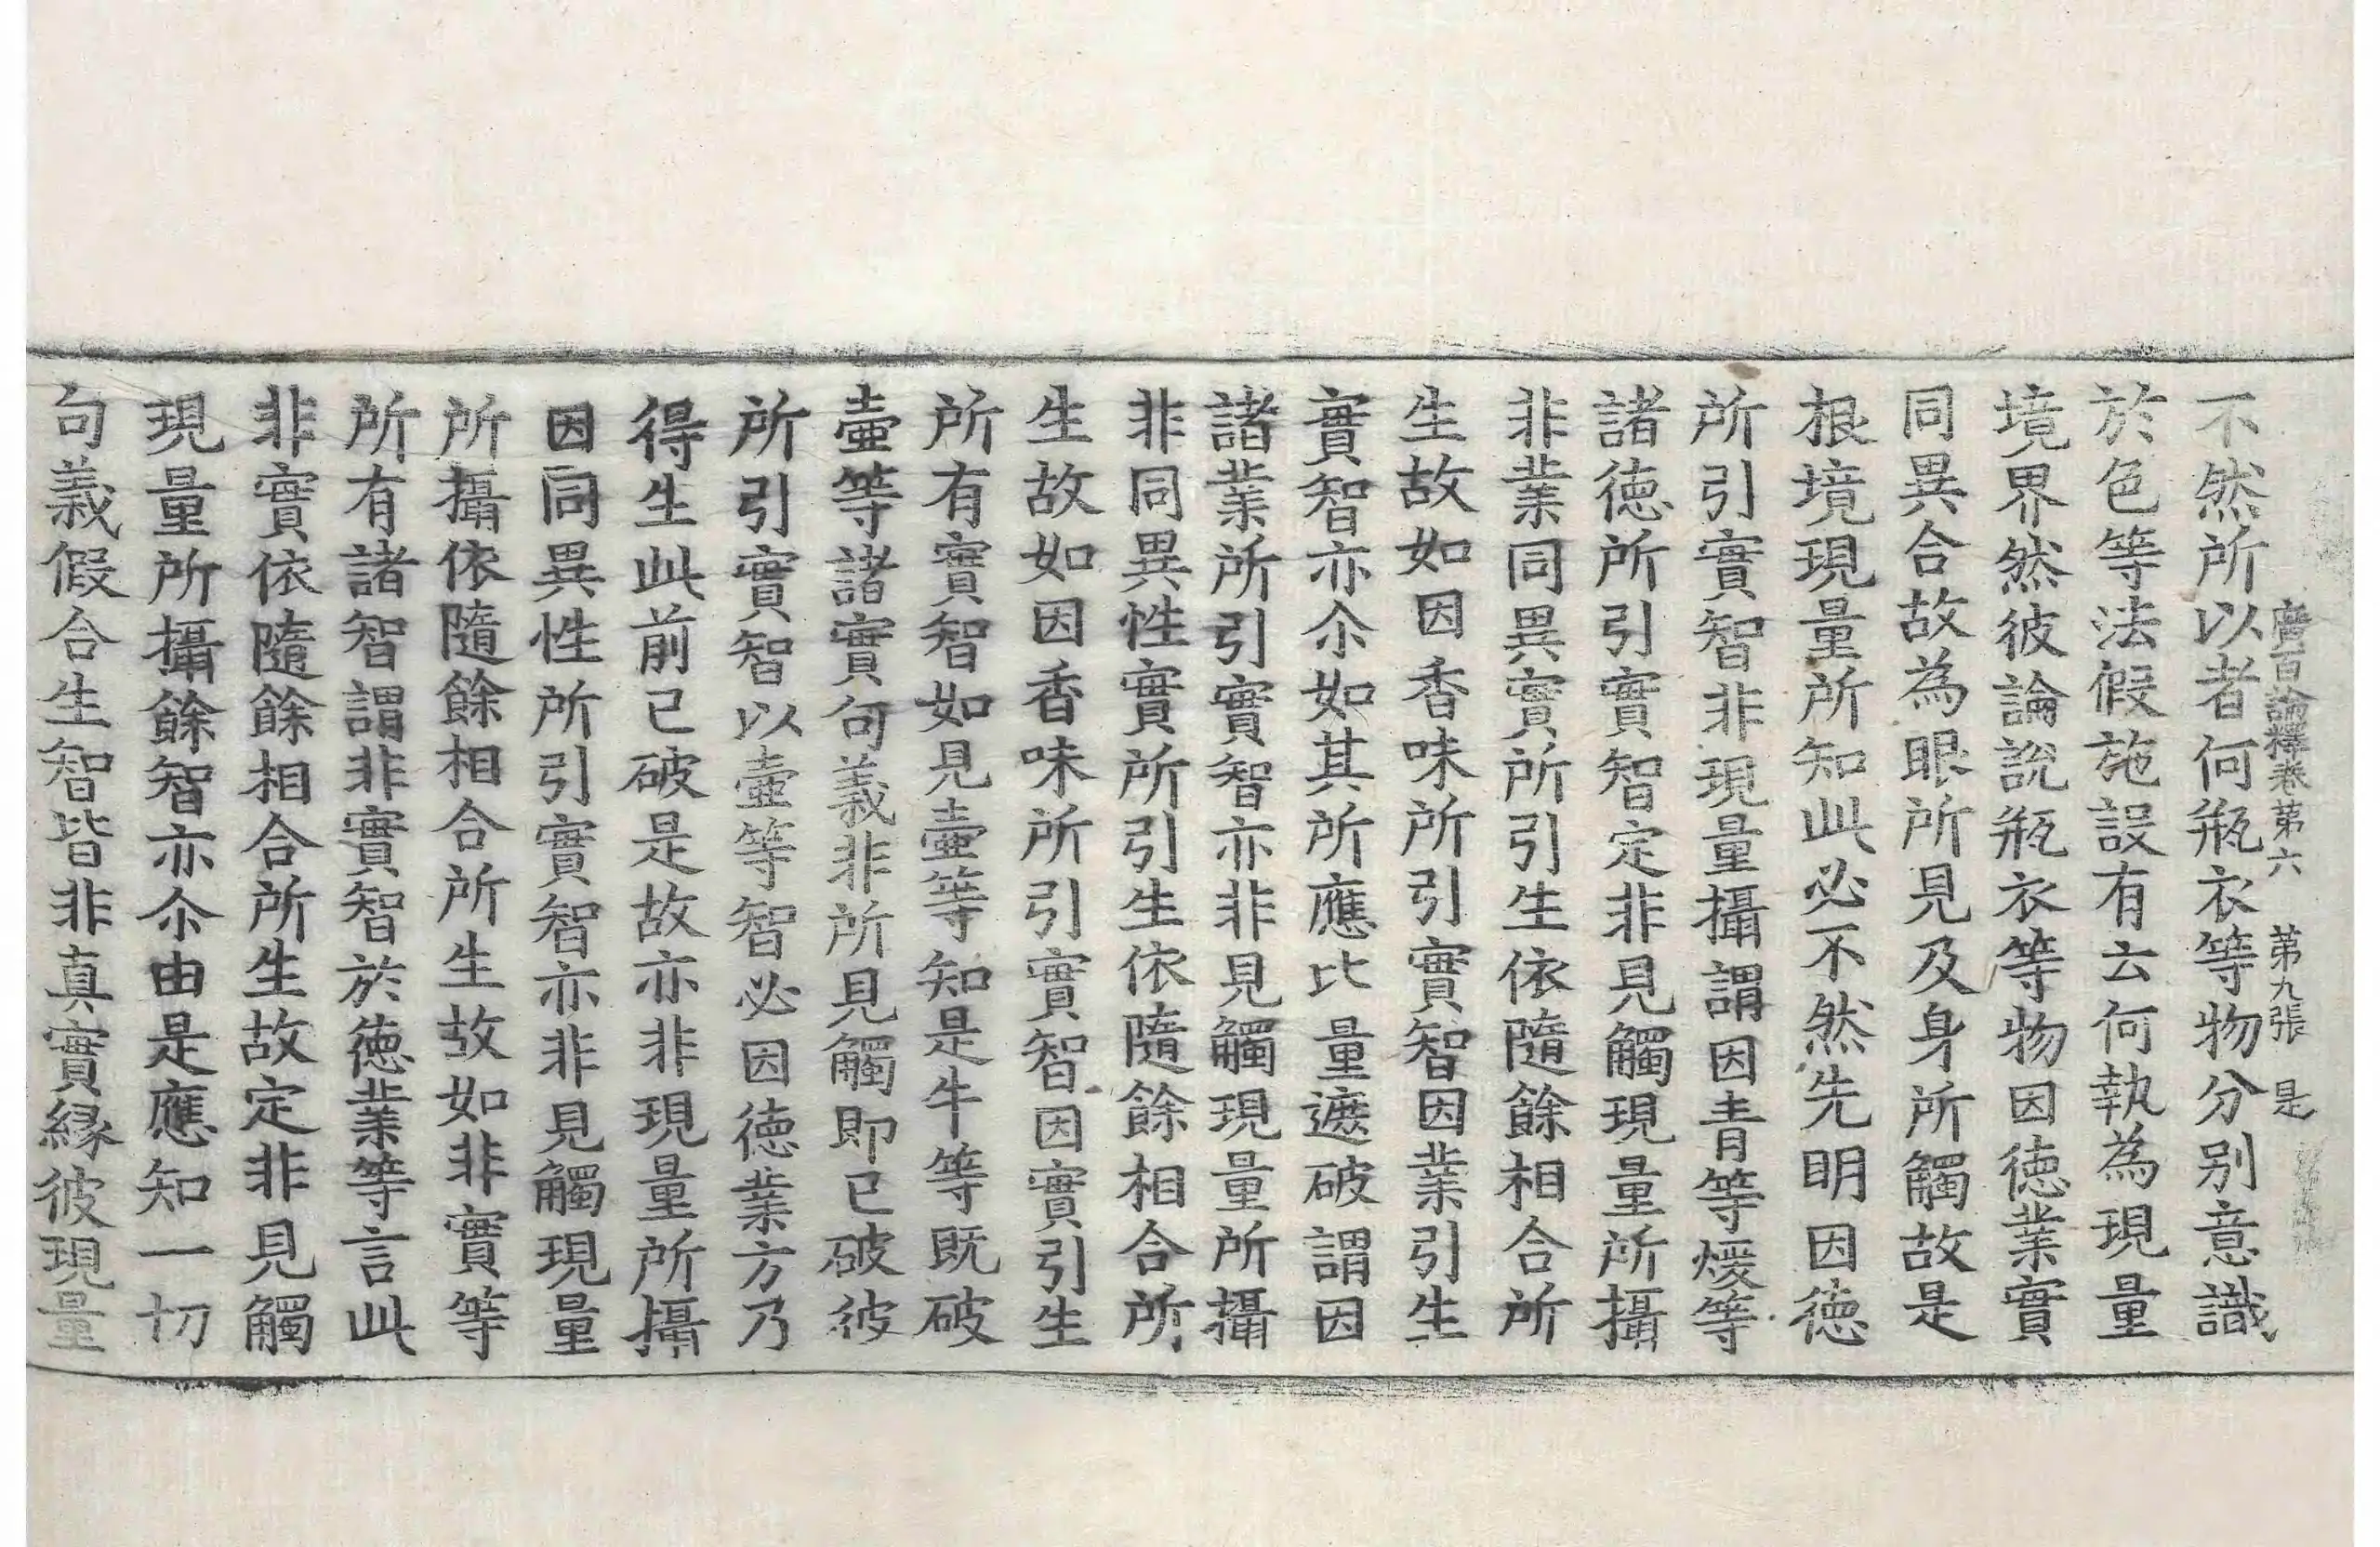 廣百論釋卷第六　第九張　是
不然所以者何瓶衣等物分别意識
於色等法假施設有云何執為現量
境界然彼論說瓶衣等物因德業實
同異合故為眼所見及身所觸故是
根境現量所知此必不然先明因德
所引實智非現量攝謂因青等煖等
諸德所引實智定非見觸現量所攝
非業同異實所引生依隨餘相合所
生故如因香味所引實智因業引生
實智亦尒如其所應比量遮破謂因
諸業所引實智亦非見觸現量所攝
非同異性實所引生依隨餘相合所
生故如因香味所引實智因實引生
所有實智如見壷等知是牛等既破
壷等諸實句義非所見觸即已破彼
所引實智以壷等智必因德業方乃
得生此前已破是故亦非現量所攝
因同異性所引實智亦非見觸現量
所攝依隨餘相合所生故如非實等
所有諸智謂非實智於德業等言此
非實依隨餘相合所生故定非見觸
現量所攝餘智亦尒由是應知一切
句義假合生智皆非真實縁彼現量